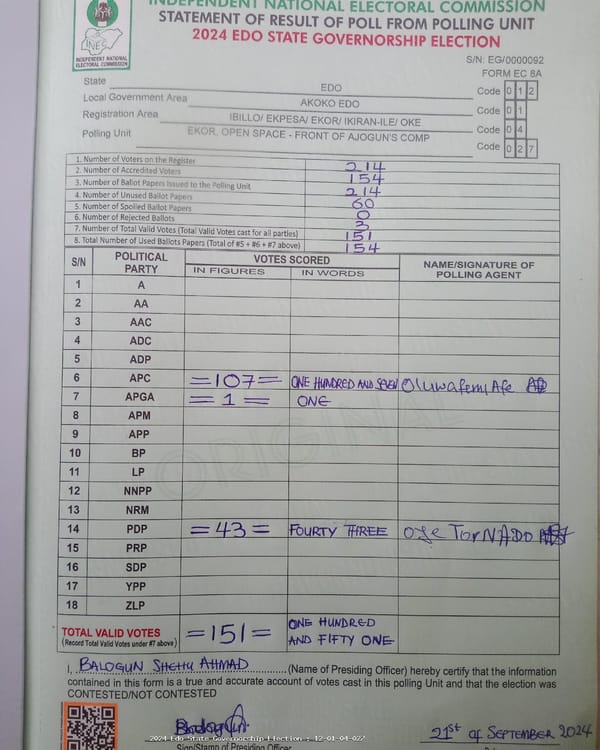 INDEPENDENT NATIONAL ELECTORAL COMMISSION
STATEMENT OF RESULT OF POLL FROM POLLING UNIT
2024 EDO STATE GOVERNORSHIP ELECTION
INEC
INDEPENDENT NATIONAL
ELECTORAL COMMISSION
S/N: EG/0000092
FORM EC 8A
State EDO Code 0 1 2
Local Government Area AKOKO EDO Code 0 1
Registration Area IBILLO/ EKPESA/ EKOR/ IKIRAN-ILE/ OKE Code 0 4
Polling Unit EKOR, OPEN SPACE - FRONT OF AJOGUN'S COMP Code 0 2 7
1. Number of Voters on the Register 214
2. Number of Accredited Voters 154
3. Number of Ballot Papers Issued to the Polling Unit 214
4. Number of Unused Ballot Papers 60
5. Number of Spoiled Ballot Papers 0
6. Number of Rejected Ballots 3
7. Number of Total Valid Votes (Total Valid Votes cast for all parties) 151
8. Total Number of Used Ballots Papers (Total of #5 + #6 + #7 above) 154
S/N POLITICAL PARTY VOTES SCORED NAME/SIGNATURE OF POLLING AGENT
IN FIGURES IN WORDS
1 A
2 AA
3 AAC
4 ADC
5 ADP
6 APC =107= ONE HUNDRED AND SEVEN Oluwafemi Afe
7 APGA =1= ONE
8 APM
9 APP
10 BP
11 LP
12 NNPP
13 NRM
14 PDP =43= FOURTY THREE OJe TorNADO
15 PRP
16 SDP
17 YPP
18 ZLP
ORIGINAL
TOTAL VALID VOTES =151= ONE HUNDRED
(Record Total Valid Votes under #7 above) AND FIFTY ONE
I, BALOGUN SHEHU AHMAD (Name of Presiding Officer) hereby certify that the information
contained in this form is a true and accurate account of votes cast in this polling Unit and that the election was
CONTESTED/NOT CONTESTED
21st of SEPTEMBER 2024
2024 Edo State Governorship Election : 12-01-04-027
Sign/Stamp of Presiding Officer